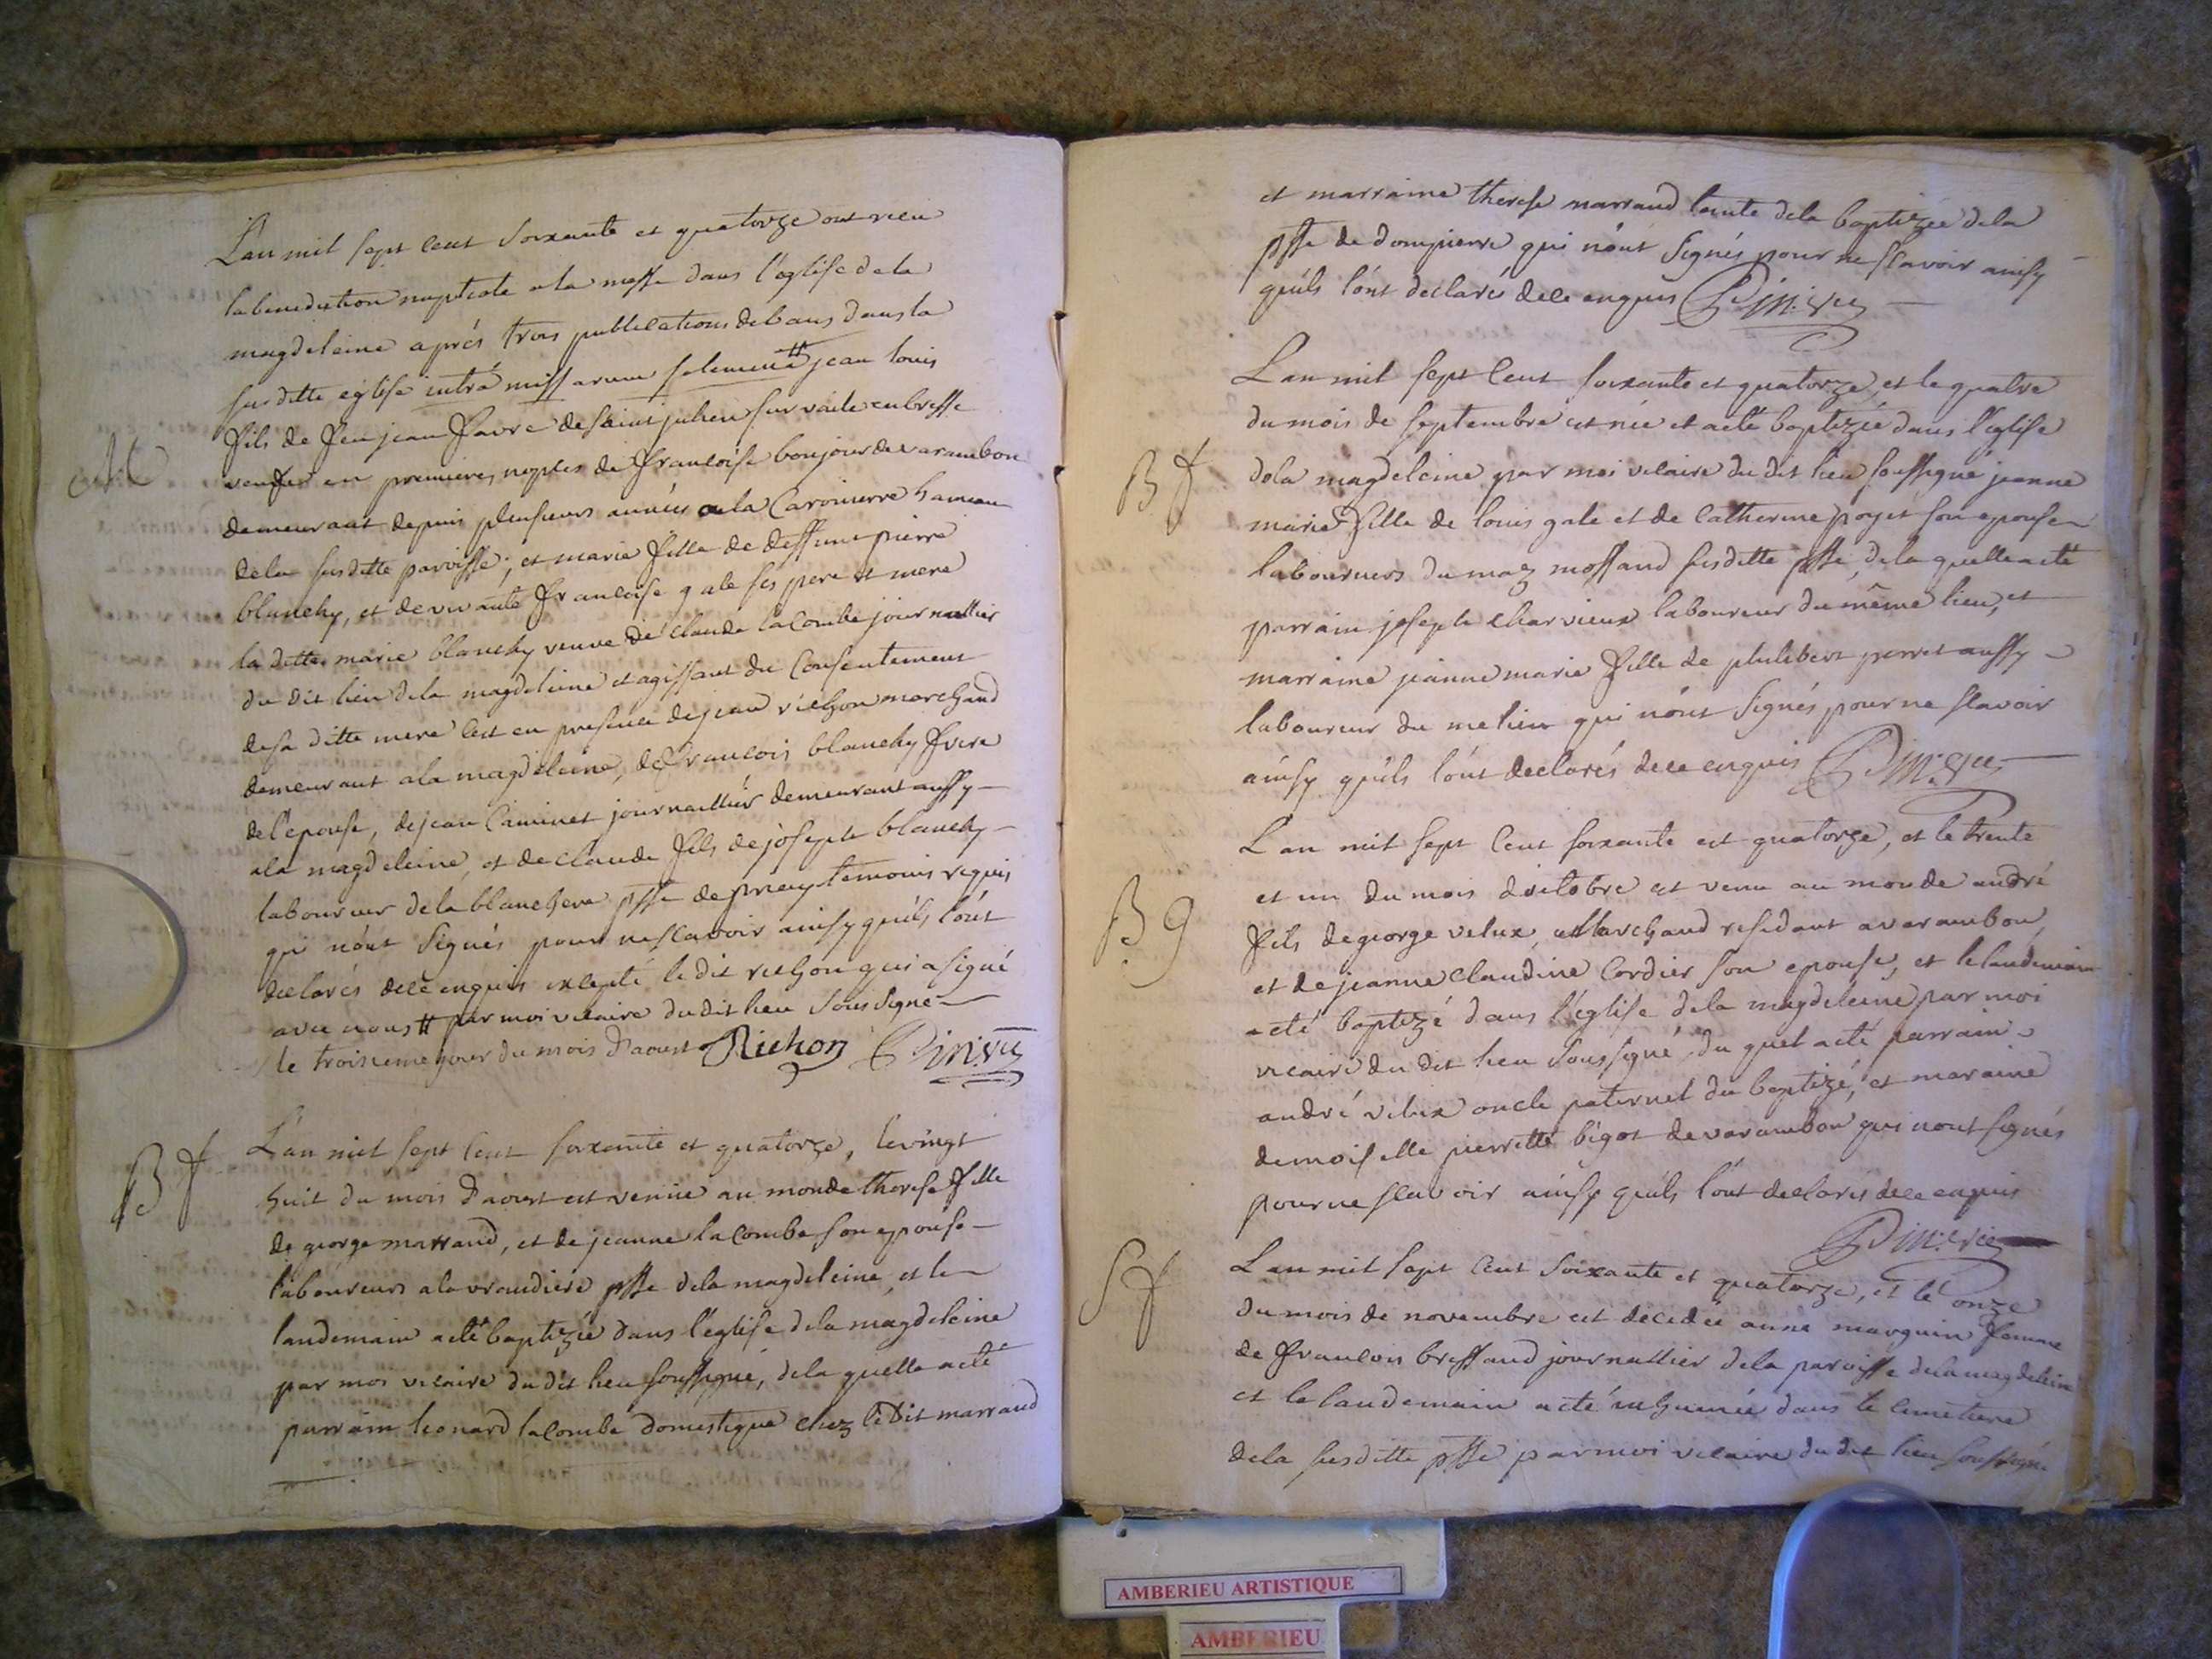 L'an mil sept cent soixante et quatorze ont recu
la benediction nuptiale a la messe dans l'église de la
magdeleine aprés trois publications de bans dans la
susditte église intrá missarum solemnia # jean louis
fils de feu jean favre de saint julien sur vaile en bresse
veuf en premieres noptes de françoise bonjour de varambon
demeurant depuis plusieurs années a la Caronierre hameau
de la susditte paroisse; et marie fille de deffunt pierre
blanchy, et de vivante françoise gale ses pere et mere
la ditte marie blanchy veuve de claude laCombe journallier
du dit lieu de la magdeleine et agissant du Consentement
de sa ditte mere c'est en presence de jean richon marchand
demeurant a la magdeleine, de françois blanchy frere
de l'epouse, de jean Caminet journallier demeurant aussy
a la magdeleine, et de claude fils de joseph blanchy
laboureur de la blanchere psse de priay temoins requis
qui n'ont signés pour ne scavoir ainsy qu'ils l'ont
declarés de ce enquis excepté le dit richon qui a signé
avec nous # par moi vicaire dudit lieu soussigné
le troisieme jour du mois d'aoust Richon
B f
L'an mil sept cent soixante et quatorze, le vingt
huit du mois d'aoust est venüe au monde therese fille
de george marraud, et de jeanne laCombe son epouse
laboureurs a la vraudiere psse de la magdeleine, et le
landemain a eté baptizée dans l'eglise de la magdeleine
par moi vicaire du dit lieu soussigné, de la quelle a eté
parrain leonard laCombe domestique chez le dit marraud
et marraine therese marraud tante de la baptizée de la
psse de dompierre qui n'ont signés pour ne scavoir ainsy
qu'ils l'ont declaré de ce enquis
B f
L'an mil sept cent soixante et quatorze, et le quatre
du mois de septembre est née et a eté baptizée dans l'eglise
de la magdeleine par moi vicaire du dit lieu soussigné jeanne
marie fille de louis gale et de catherine poget son epouse
laboureurs du maz mossaud susditte psse, de la quelle a eté
parrain joseph charvieux laboureur du même lieu, et
marraine jeanne marie fille de philibert perret aussy
laboureur du me lieu qui n'ont signés pour ne scavoir
ainsy qu'ils l'ont declarés de ce enquis
B g
L'an mil sept cent soixante et quatorze, et le trente
et un du mois d'octobre est venu au monde andré
fils de george velux, Marchand residant a varambon,
et de jeanne claudine Cordier son epouse, et le landemain
a eté baptizé dans l'église de la magdeleine par moi
vicaire du dit lieu soussigné, du quel a eté parrain
andré velux oncle paternel du baptizé, et maraine
demoiselle pierrette bigot de varambon qui n'ont signés
pour ne scavoir ainsy qu'ils l'ont declarés de ce enquis
S f
L'an mil sept cent soixante et quatorze, et le onze
du mois de novembre est decedée anne marguin femme
de françois bressand journallier de la paroisse de la magdeleine
et le landemain a eté inhumée dans le cimetiere
de la susditte psse par moi vicaire du dit lieu soussigné
AMBERIEU ARTISTIQUE
AMBERIEU